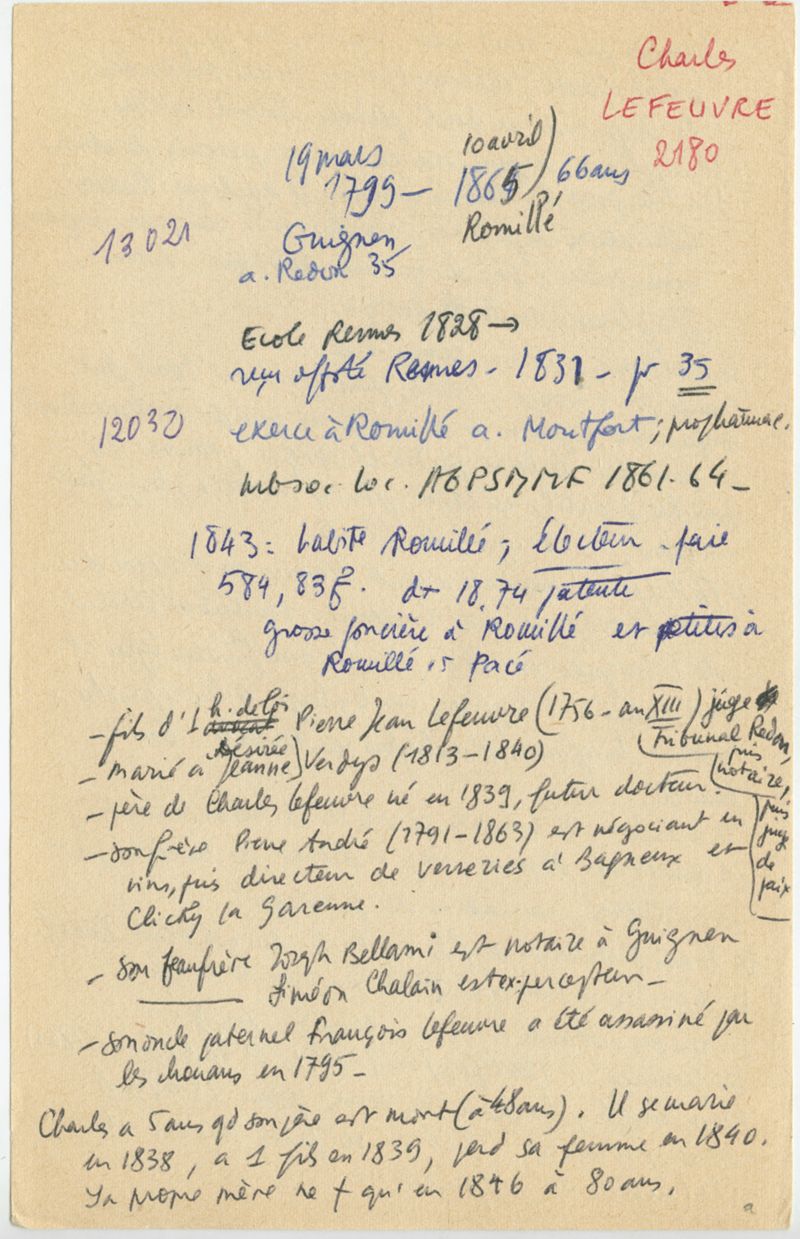 Charles
LEFEUVRE
2180
19 mars 10 avril
1799 – 1865) 66 ans
13021 Guignen Romillé
a. Redon 35
Ecole Rennes 1828 →
reçu offté Rennes - 1831 - pr 35
12032 exerce à Romillé a. Montfort ; propharmac.
mb soc. loc. AGPSMMF 1861-64 –
1843 = habite Romillé ; électeur - paie
584,83f. dt 18,74 patente
grosse foncière à Romillé et petites à
Romillé et Pacé
– fils d'1 avocat h. de loi Pierre Jean Lefeuvre (1756 - an XIII) juge
Tribunal Redon,
puis notaire,
puis juge de paix
– marié à Jeanne Désirée) Verdys (1813-1840)
– père de Charles Lefeuvre né en 1839, futur docteur.
– son frère Pierre André (1791-1863) est négociant en
vins, puis directeur de verreries à Bagneux et
Clichy la Garenne.
– son beau frère Joseph Bellami est notaire à Guignen
Siméon Chalain est ex-percepteur –
– son oncle paternel François Lefeuvre a été assassiné par
les chouans en 1795 –
Charles a 5 ans qd son père est mort (à 48 ans). Il se marie
en 1838, a 1 fils en 1839, perd sa femme en 1840.
Sa propre mère ne + qu'en 1846 à 80 ans.
a